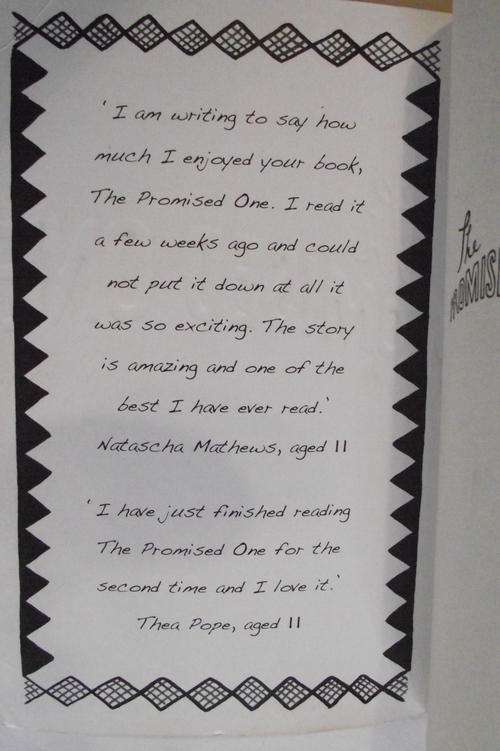 ' I am writing to say how
much I enjoyed your book,
The Promised One. I read it
a few weeks ago and could
not put it down at all it
was so exciting. The story
is amazing and one of the
best I have ever read.'
Natascha Mathews, aged 11
' I have just finished reading
The Promised One for the
second time and I love it.'
Thea Pope, aged 11
the